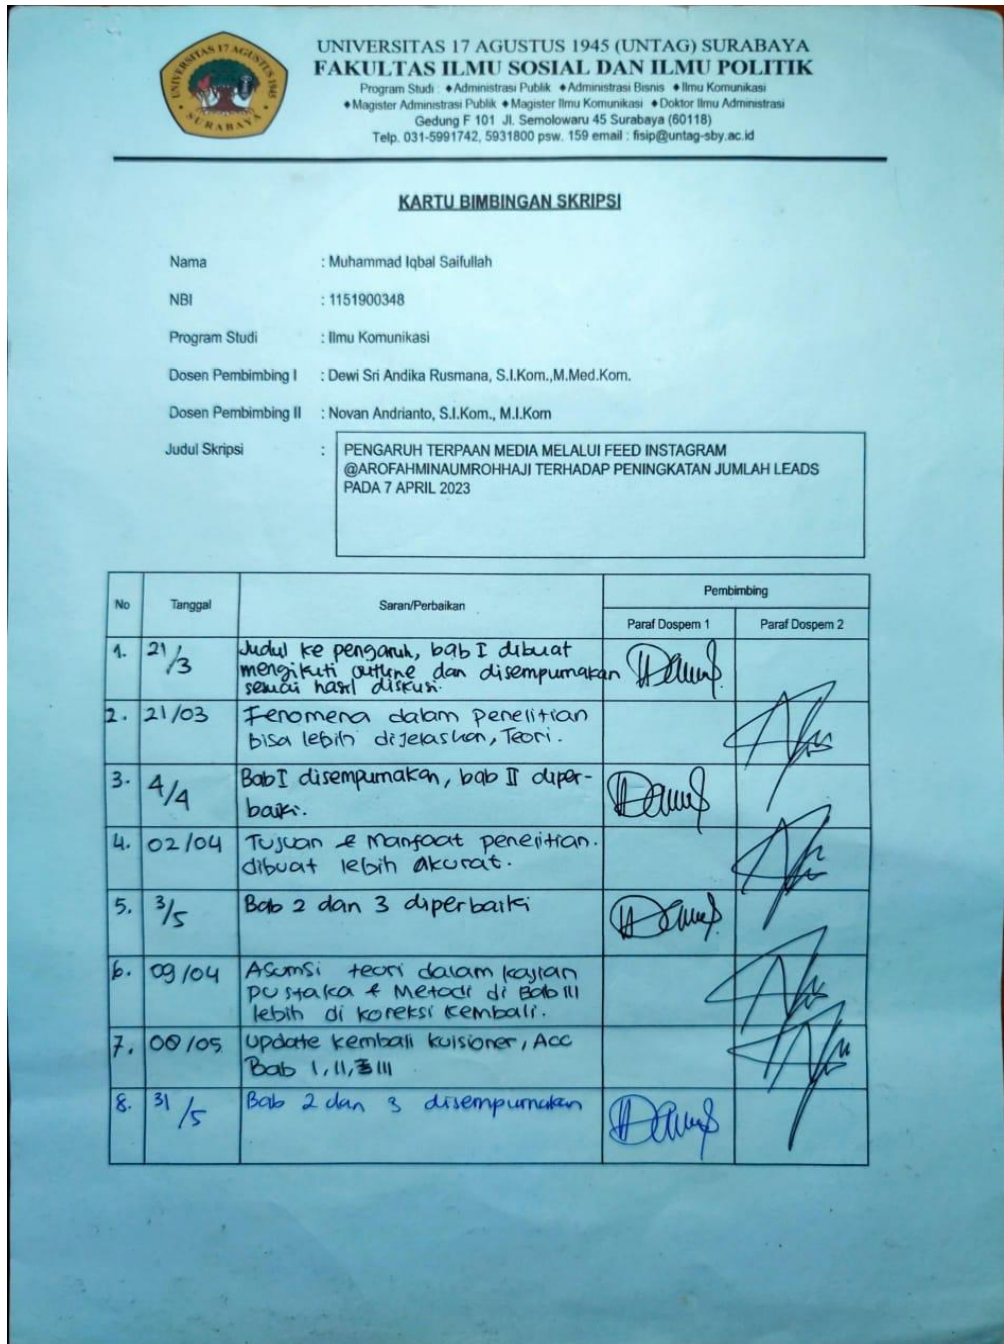 UNIVERSITAS 17 AGUSTUS 1945
SURABAYA
UNIVERSITAS 17 AGUSTUS 1945 (UNTAG) SURABAYA
FAKULTAS ILMU SOSIAL DAN ILMU POLITIK
Program Studi : ♦Administrasi Publik ♦Administrasi Bisnis ♦Ilmu Komunikasi
♦Magister Administrasi Publik ♦Magister Ilmu Komunikasi ♦Doktor Ilmu Administrasi
Gedung F 101 Jl. Semolowaru 45 Surabaya (60118)
Telp. 031-5991742, 5931800 psw. 159 email : fisip@untag-sby.ac.id
KARTU BIMBINGAN SKRIPSI
Nama : Muhammad Iqbal Saifullah
NBI : 1151900348
Program Studi : Ilmu Komunikasi
Dosen Pembimbing I : Dewi Sri Andika Rusmana, S.I.Kom.,M.Med.Kom.
Dosen Pembimbing II : Novan Andrianto, S.I.Kom., M.I.Kom
Judul Skripsi : PENGARUH TERPAAN MEDIA MELALUI FEED INSTAGRAM
@AROFAHMINAUMROHHAJI TERHADAP PENINGKATAN JUMLAH LEADS
PADA 7 APRIL 2023
No Tanggal Saran/Perbaikan Pembimbing
Paraf Dospem 1 Paraf Dospem 2
1. 21/3 Judul ke pengaruh, bab I dibuat
mengikuti outline dan disempurnakan
sesuai hasil diskusi.
2. 21/03 Fenomena dalam penelitian
bisa lebih dijelaskan, Teori.
3. 4/4 Bab I disempurnakan, bab II diper-
baiki.
4. 02/04 Tujuan & Manfaat penelitian.
dibuat lebih akurat.
5. 3/5 Bab 2 dan 3 diperbaiki
6. 09/04 Asumsi teori dalam kajian
pustaka & Metode di Bab III
lebih di koreksi kembali.
7. 08/05 Update kembali kuisioner, Acc
Bab I, II, III
8. 31/5 Bab 2 dan 3 disempurnakan